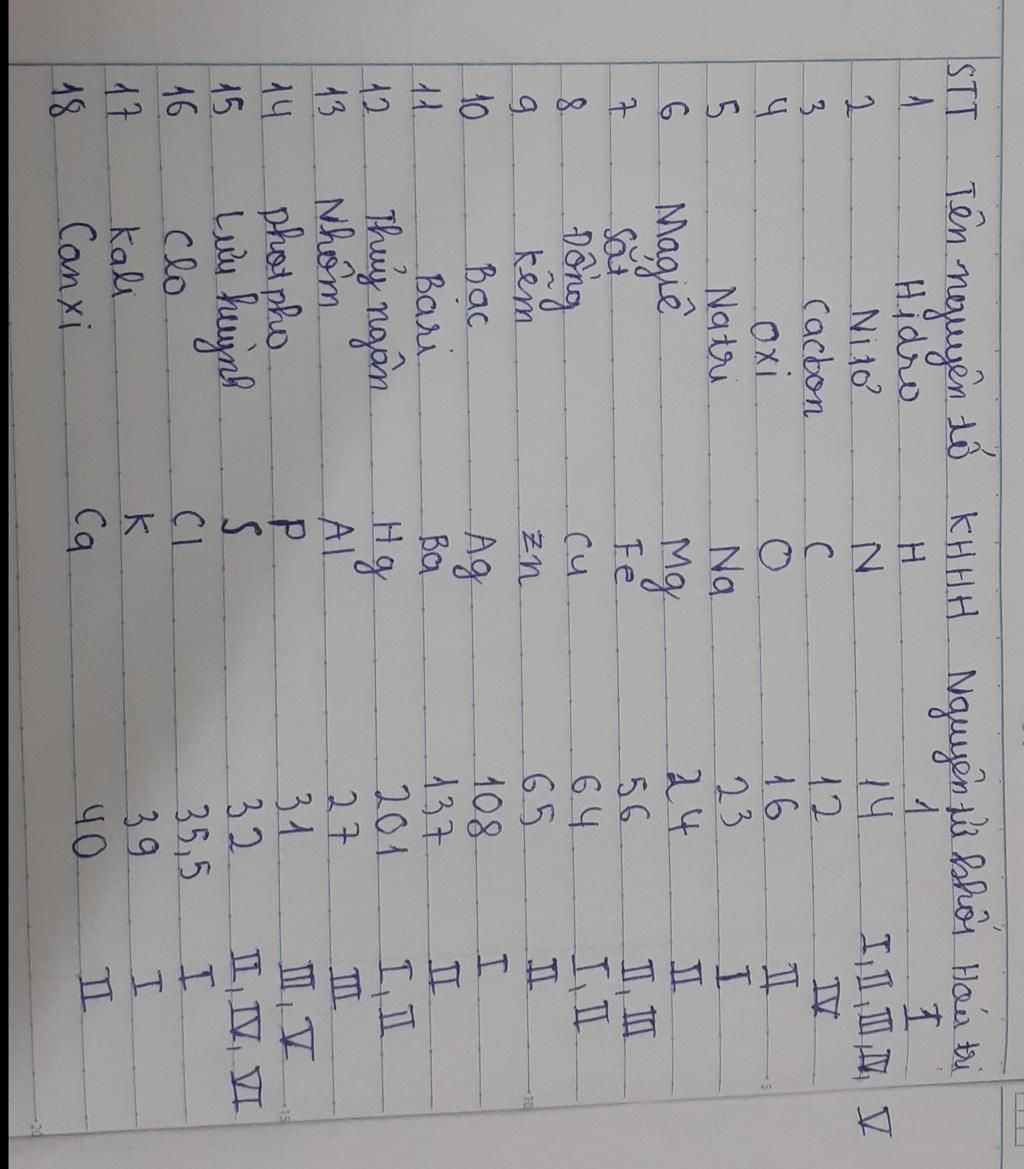 STT Tên nguyên tố KHHH Nguyên tử khối Hóa trị
1 Hidro H 1 I
2 Nitơ N 14 I, II, III, IV, V
3 Cacbon C 12 IV
4 Oxi O 16 II
5 Natri Na 23 I
6 Magiê Mg 24 II
7 Sắt Fe 56 II, III
8 Đồng Cu 64 I, II
9 Kẽm Zn 65 II
10 Bac Ag 108 I
11 Bari Ba 137 II
12 Thủy ngân Hg 201 I, II
13 Nhôm Al 27 III
14 photpho P 31 III, V
15 Lưu huỳnh S 32 II, IV, VI
16 Clo Cl 35,5 I
17 Kali K 39 I
18 Canxi Ca 40 II